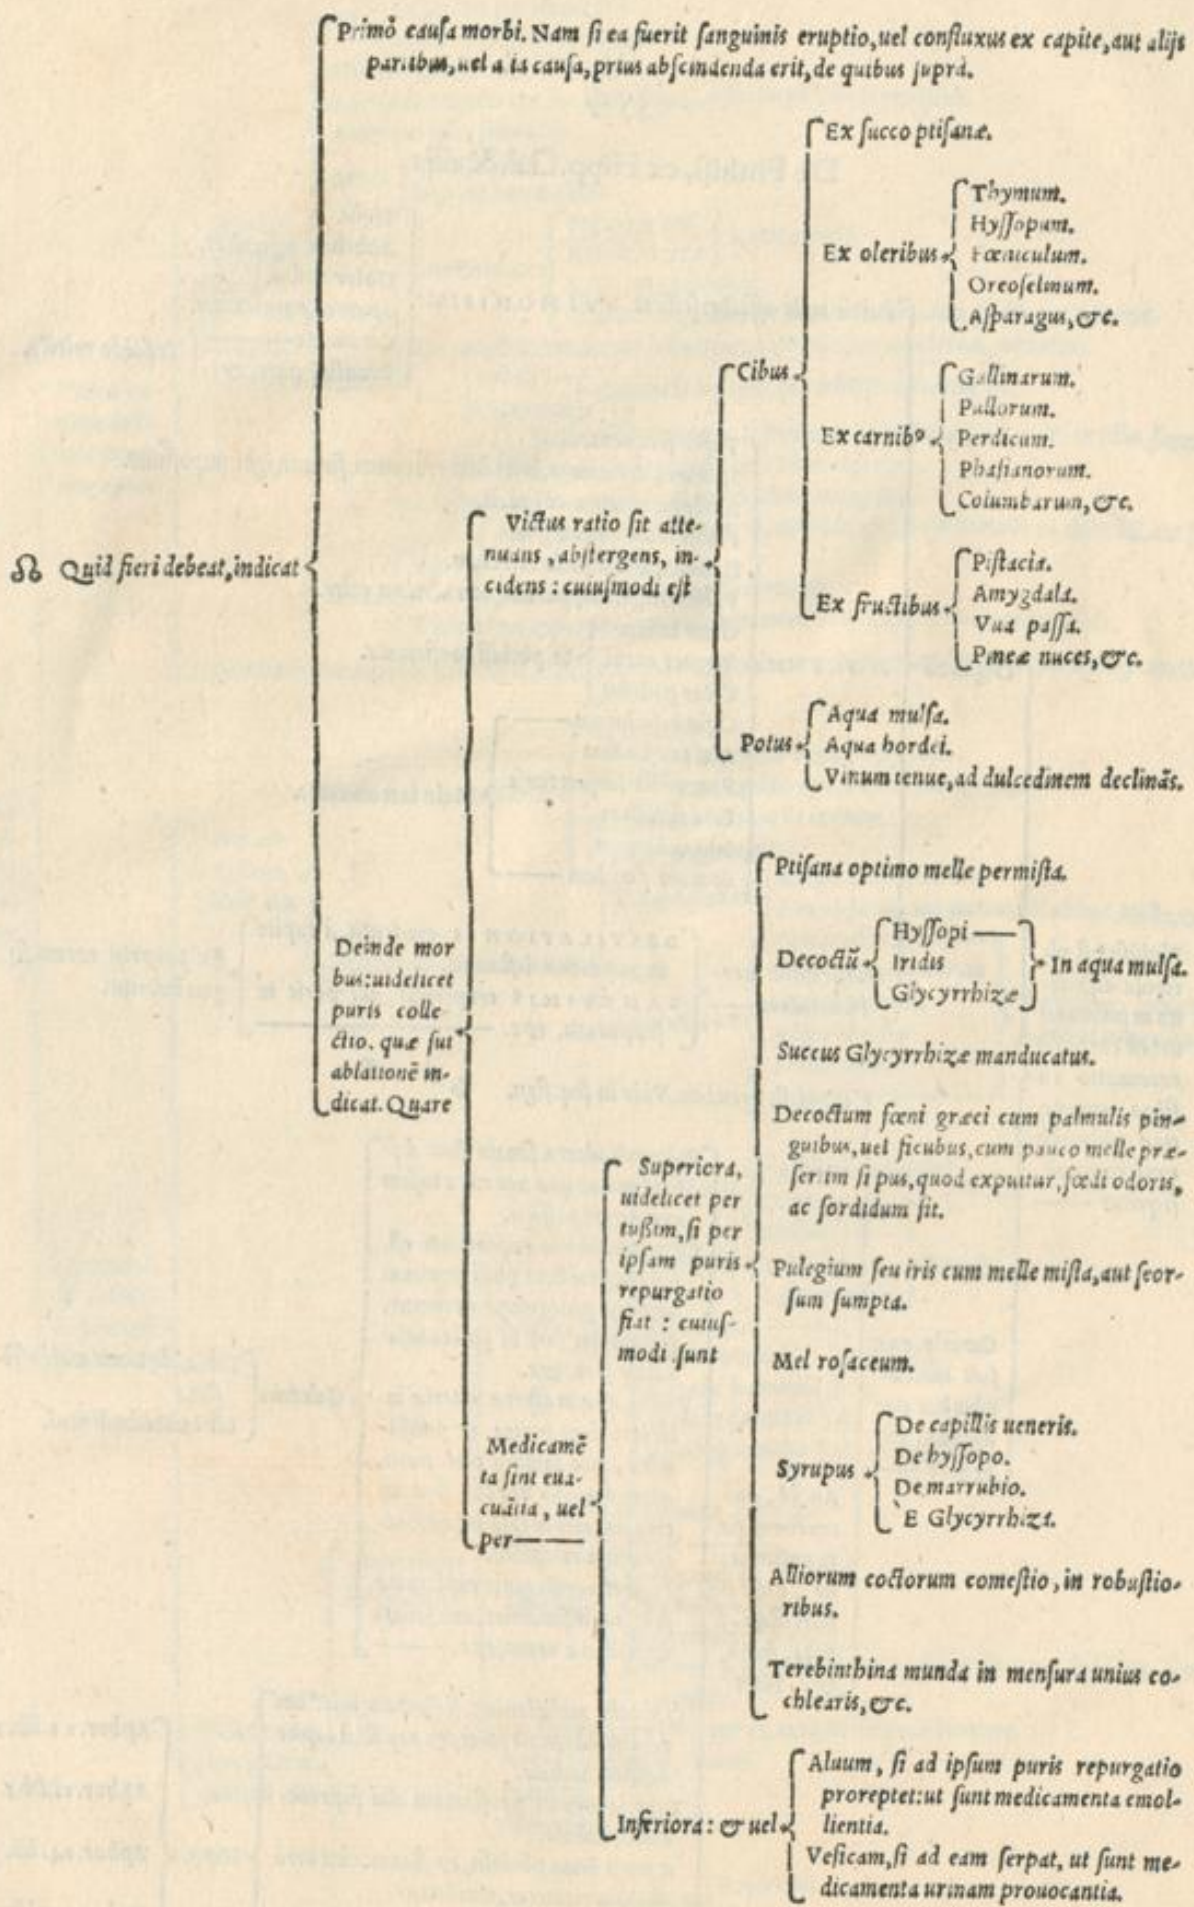 Primò causa morbi. Nam si ea fuerit sanguinis eruptio, uel confluxus ex capite, aut alijs
partibus, uel alia causa, prius abscindenda erit, de quibus suprà.
☊ Quid fieri debeat, indicat
Deinde mor
bus: uidelicet
puris colle
ctio. quæ sui
ablationē in-
dicat. Quare
Victus ratio sit atte-
nuans, abstergens, in-
cidens: cuiusmodi est
Cibus
Ex succo ptisanæ.
Ex oleribus
Thymum.
Hyssopum.
Fœniculum.
Oreoselinum.
Asparagus, &c.
Ex carnibꝰ
Gallinarum.
Pullorum.
Perdicum.
Phasianorum.
Columbarum, &c.
Ex fructibus
Pistacia.
Amygdala.
Vua passa.
Pineæ nuces, &c.
Potus
Aqua mulsa.
Aqua hordei.
Vinum tenue, ad dulcedinem declinãs.
Medicamē
ta sint eua-
cuãtia, uel
per
Superiora,
uidelicet per
tußim, si per
ipsam puris
repurgatio
fiat: cuius-
modi sunt
Ptisana optimo melle permista.
Decoctũ
Hyssopi
Iridis
Glycyrrhizæ
In aqua mulsa.
Succus Glycyrrhizæ manducatus.
Decoctum fœni græci cum palmulis pin-
guibus, uel ficubus, cum pauco melle præ-
sertim si pus, quod expuitur, fœdi odoris,
ac sordidum sit.
Pulegium seu iris cum melle mista, aut seor-
sum sumpta.
Mel rosaceum.
Syrupus
De capillis ueneris.
De hyssopo.
De marrubio.
È Glycyrrhiza.
Alliorum coctorum comestio, in robustio-
ribus.
Terebinthina munda in mensura unius co-
chlearis, &c.
Inferiora: & uel
Aluum, si ad ipsum puris repurgatio
proreptet: ut sunt medicamenta emol-
lientia.
Vesicam, si ad eam serpat, ut sunt me-
dicamenta urinam prouocantia.